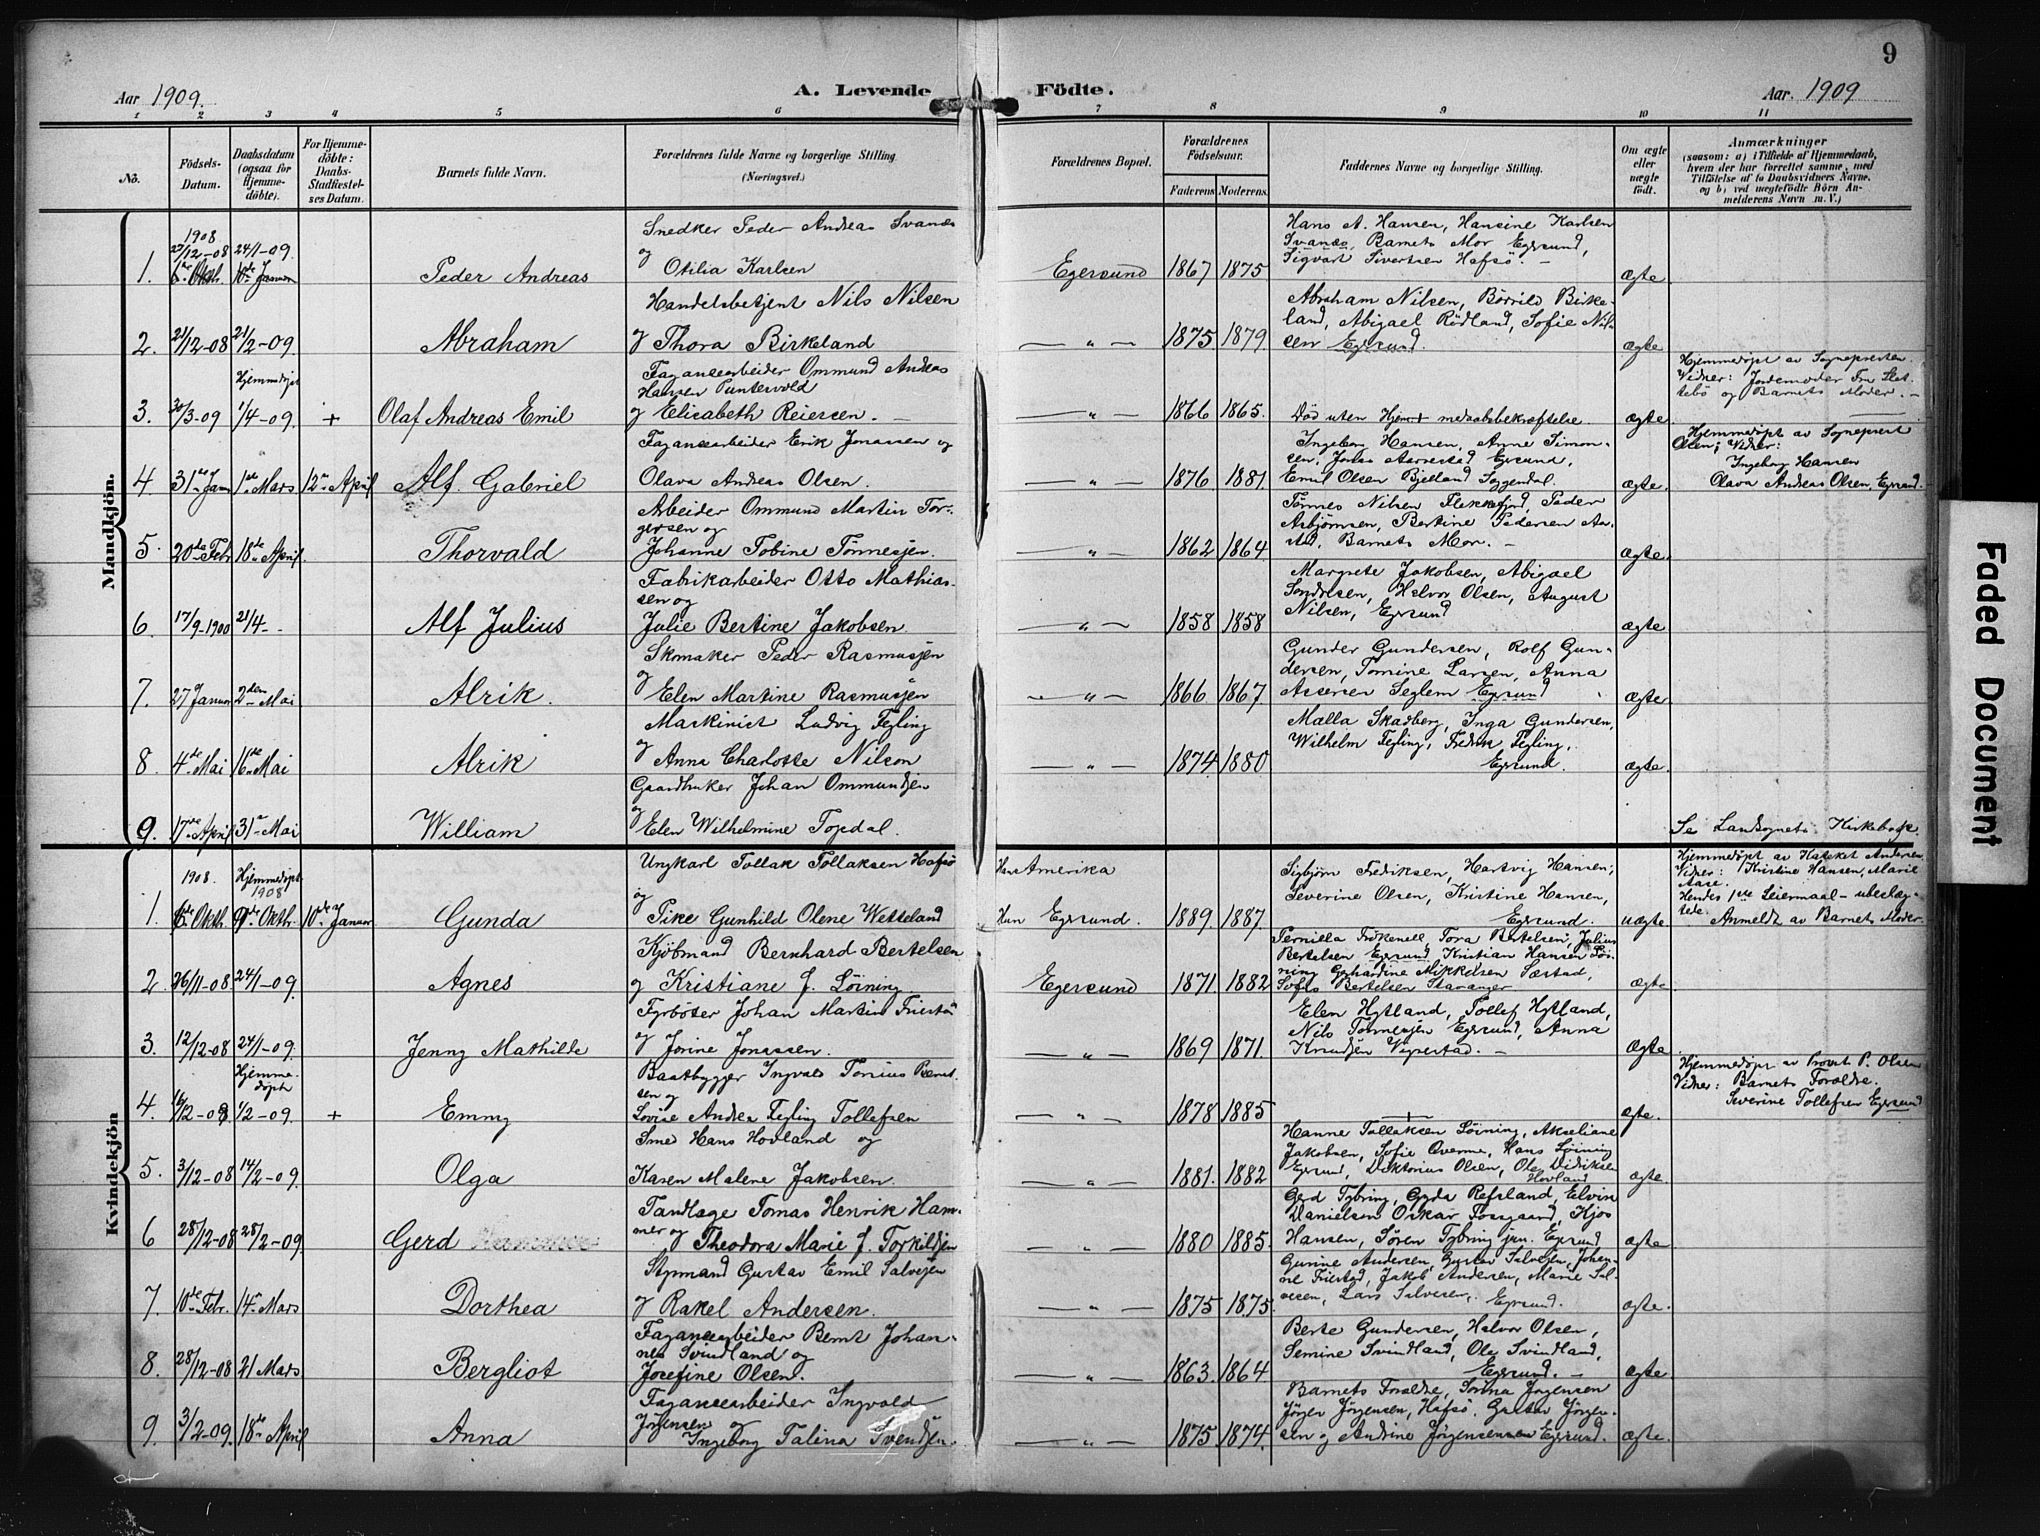 9
Aar 1909.
A. Levende Födte.
Aar. 1909
1 2 3 4 5 6 7 8 9 10 11
No.
Födsels-Datum.
Daabsdatum (ogsaa for Hjemme-döbte).
For Hjemme-döbte: Daabs-Stadfæstel-ses Datum.
Barnets fulde Navn.
Forældrenes fulde Navne og borgerlige Stilling.
(Næringsvei.)
Forældrenes Bopæl.
Forældrenes Födselsaar.
Faderens Moderens.
Faddernes Navne og borgerlige Stilling.
Om ægte eller uægte födt.
Anmærkninger
(saasom: a) i Tilfælde af Hjemmedaab,
hvem der har forrettet samme, med
Tilföielse af to Daabsvidners Navne,
og b) ved uægtefödte Börn An-
melderens Navn m. V.)
Mandkjön.
1908
1. 27/12-08 24/1-09. Peder Andreas
Snedker Peder Andreas Svanes
og
Otilia Karlsen
Egersund 1867 1875
Hans A. Hansen, Hansine Karlsen
Svanes, Barnets Mor Egersund,
Sigvart Sivertsen Hafsö. —
ægte
2. 21/12-08 21/2-09. Abraham
Handelsbetjent Nils Nilsen
og Thora Birkeland
— " — 1875 1879.
Abraham Nilsen, Børrild Birke-
land, Abigael Rødland, Sofie Nil-
sen Egersund.
ægte
Hjemmedøpt
3. 30/3-09 1/4-09. + Olaf Andreas Emil
Fagansearbeider Ommund Andreas
Hansen Puntervold
og Elisabeth Reiersen. —
— " — 1866 1865.
Død uten Hjem medaabsbekræftelse.
ægte.
Hjemmedøpt av Sognepresten
Vidner: Jordemoder Fru Slet-
tebö og Barnets Moder. —
4. 31te Jan. 1ste Mars 12te April Alf Gabriel
Fagansearbeider Erik Jonassen og
Olava Andrea Olsen.
— " — 1876 1881.
Ingeborg Hansen, Anne Simon-
sen, Jonas Aarrestad Egersund,
Emil Olsen Bjelland Soggendal.
ægte.
Hjemmedøpt av Sogneprest
Olsen; Vidner:
Ingeborg Hansen
Olava Andreas Olsen, Egersund.
5. 20de Febr 18de April. Thorvald
Arbeider Ommund Martin Tor-
gersen og
Johanne Tobine Tønnesjen.
— " — 1862 1864
Tønnes Nilsen Flekkefjord, Peder
Asbjørnsen, Bertine Pedersen
Barnets Mor. —
ægte.
6. 17/9-1900 21/4- - Alf Julius
Fabrikarbeider Otto Mathias-
sen og
Julie Bertine Jakobsen.
— " — 1858 1858
Margrete Jakobsen, Abigael
Halvor Olsen, August
Nilsen, Egersund
ægte
7. 27 Januar 2den Mai Alrik.
Skomaker Peder Rasmusjen
og
Elen Martine Rasmusjen
— " — 1866 1867.
Gunder Gundersen, Rolf Gun-
dersen, Tomine Larsen, Anna
Assersen Seglem Egersund
ægte
8. 4de Mai 16de Mai Alrik
Maskinist Ludvig Fegling
og
Anna Charlotte Nilson
— " — 1874. 1880
Malla Skadberg, Inga Gundersen,
Wilhelm Fegling, Fredrik Fegling,
Egersund.
ægte.
9. 17de April 31te Mai William
Gaardbruker Johan Ommundsen
og
Elen Wilhelmine Topdal.
Se Landsognets Kirkebog.
Kvindekjön
1908. Hjemmedøpt 1908
1. 6te Oktbr. 9de Oktbr. 10de Januar Gunda
Ungkarl Tollak Tollaksen Hafsö
og
Pike Gunhild Olene Wetteland
Hans Amerika
Hun Egersund. 1889. 1887.
Sigbjørn Fredriksen, Hartvig Hansen;
Severine Olsen, Kristine Hansen,
Egersund.
uægte.
Hjemmedøpt av Kateket Andersen
Vidner: Kristine Hansen, Marie
Aase.
Hendes 1ste Leiermaal
Anmeldt av Barnets Moder.
2. 26/11-08 24/1-09. Agnes
Kjøbmand Bernhard Bertelsen
og Kristiane f. Löining.
Egersund 1871 1882
Pernilla Tora Bertelsen, Julius
Bertelsen Egersund Kristian Hansen Löi-
ning Gerhardine Mikkelsen
Sofus Bertelsen Stavanger
ægte
3. 12/12-08 24/1-09. Jenny Mathilde
Fyrbøter Johan Martin Friestö
og Jorine Jonassen.
— " — 1869 1871.
Elen Hytland, Tollef Hytland,
Nils Tønnesjen Egersund, Anna
Knudsen Vigrestad. —
ægte
Hjemmedøpt
4. 12-08. 1/2-09. + Emmy
Baatbygger Ingvald Tonius Bernt-
sen og
Lovise Andrea Fegling Tollefsen
— " — 1878 1885
+
ægte.
Hjemmedøpt av Provst P. Olsen
Vidner: Barnets Forældre.
Severine Tollefsen Egersund
5. 3/12-08 14/2-09. Olga
Smed Hans Hovland og
Karen Malene Jakobsen.
— " — 1881. 1882
Hanne Tollaksen Löining, Akseliane
Jakobsen, Sofie Hans Löining
Egersund, Olsen, Ole Didriksen
Hovland
ægte.
6 28/12-08 28/2-09. Gerd
Tandlæge Tomas Henrik Ham-
mer og Theodora Marie f. Torkildsen
— " — 1880 1885.
Gerd Tybring, Gyda Refsland, Elvin
Danielsen Oskar Fossgaard
Hansen, Sören Tybring jun. Egersund
ægte.
7. 10de Febr. 14. Mars Dorthea
Styrmand Gustav Emil Salvesen
og Rakel Andersen.
— " — 1875 1875.
Gunine Andersen, Gustav Salvesen, Johan-
ne Friestad, Jakob Andersen, Marie Sal-
vesen, Lars Salvesen, Egersund.
ægte.
8. 28/12-08 21 Mars Bergliot
Fagansearbeider Bernt Johan-
nes Svindland og
Josefine Olsen.
— " — 1863. 1864
Berte Gundersen, Halvor Olsen,
Semine Svindland, Ole Svindland,
Egersund. —
ægte
9. 3/2-09. 18de April Anna
Fagansearbeider Ingvald
Jørgensen og
Ingeborg Talina Svendsen.
— " — 1875 1874.
Barnets Forældre, Jørgensen
Jörgen Jörgensen, Hafsö. Gustav Jörgen-
sen og Andrine Jörgensen Egersund.
ægte.
Faded Document